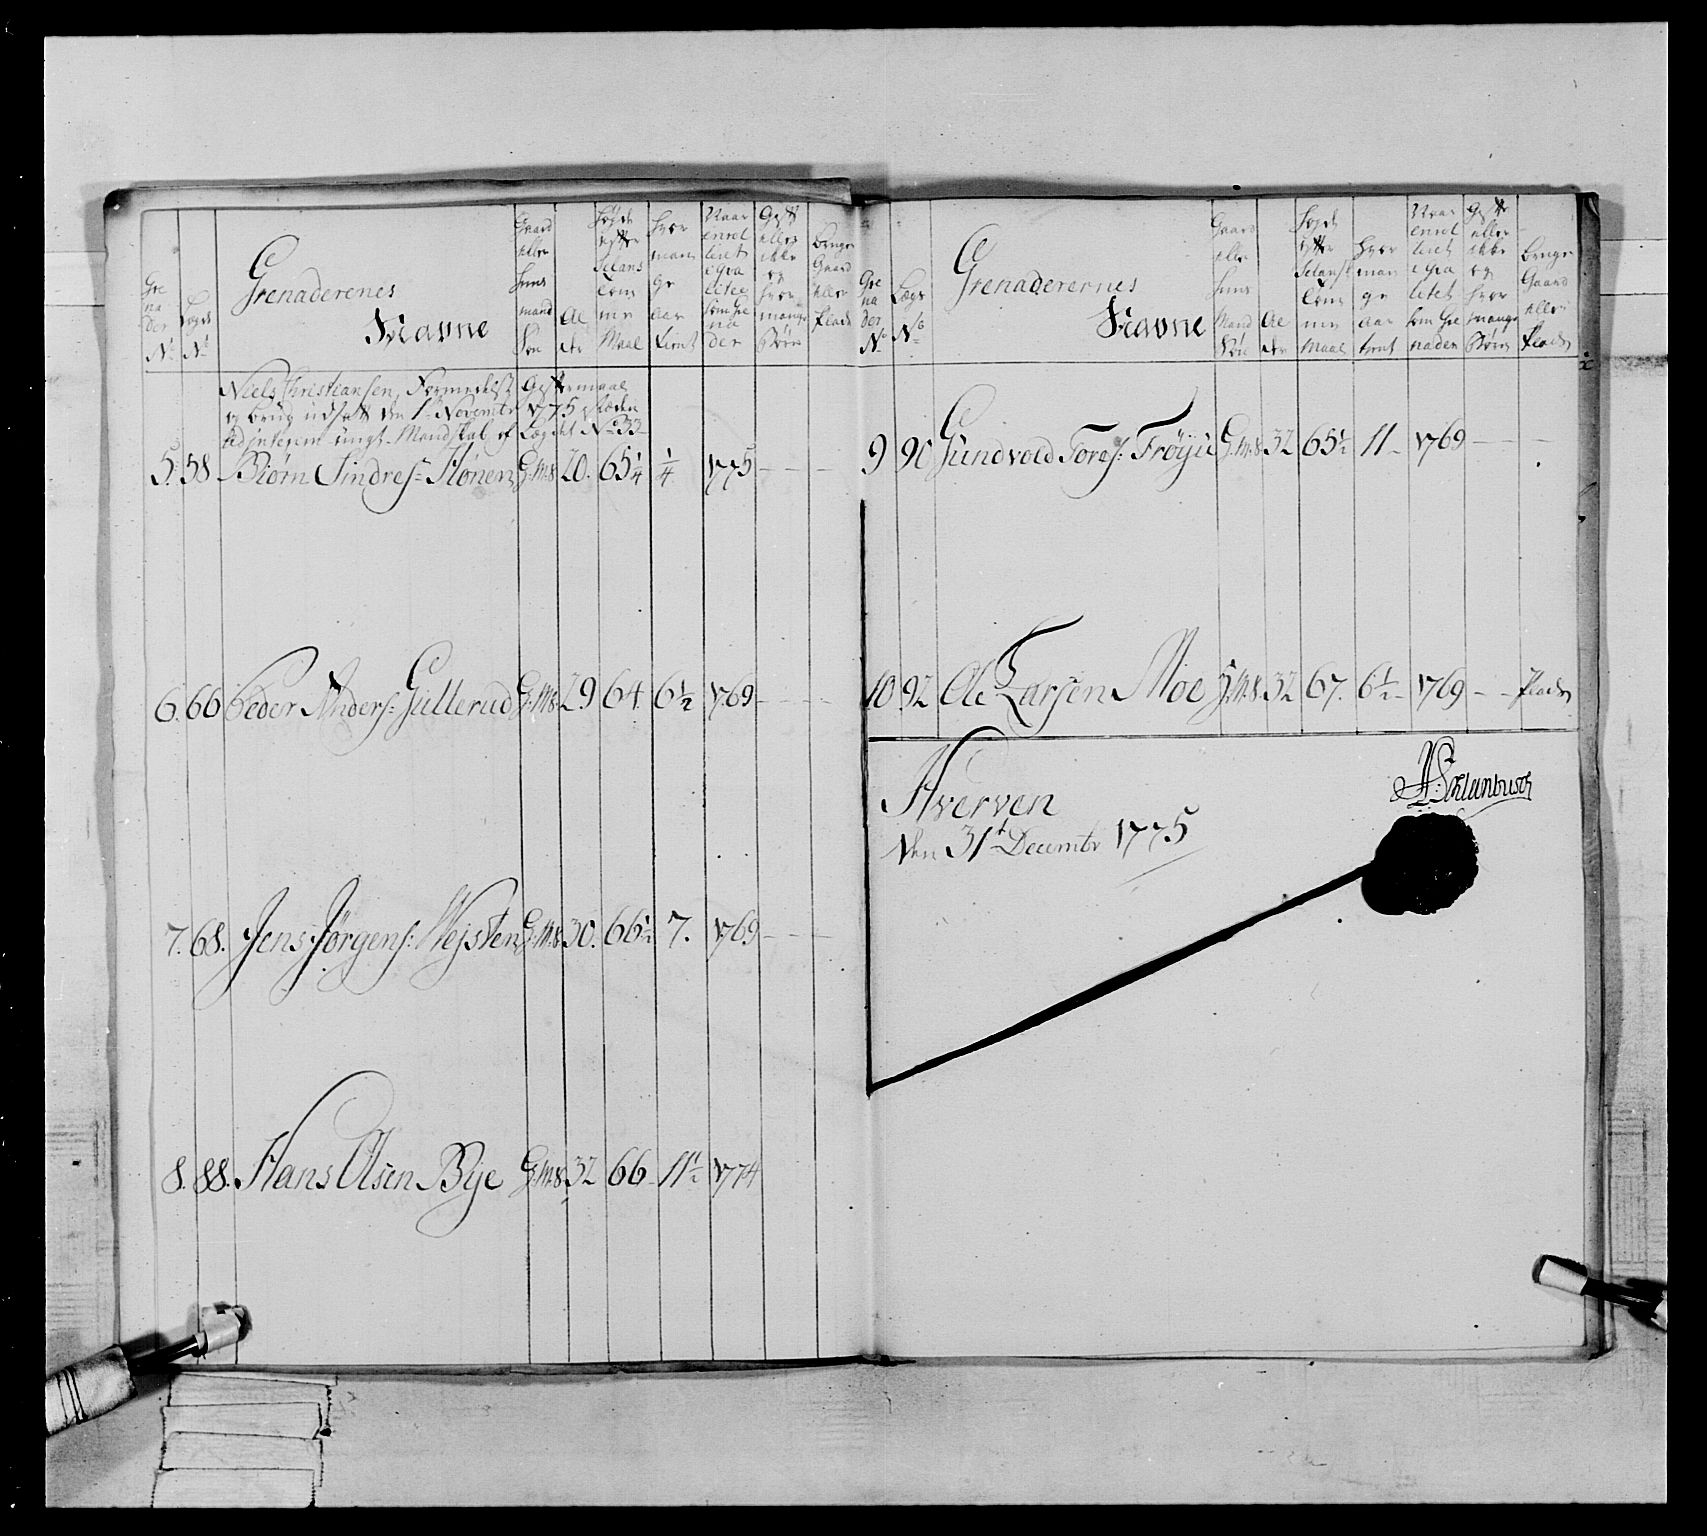 Gre
na
der
No
Lægds
No
Grenaderenes
Navne
Gaard
eller
huus
mand
Søn
Al
der
høyde
efter
Selans
Com
me
Maal
hvor
man
ge
aar
tient
Naar
enrol
leret
i qva
litee
som Gre
na
der
Gift
eller
ikke
og
hvor
mange
Børn
bruger
Gaard
eller
Plads
Niels Christiansen, Formedelst Giftermaal
og brug udsatt den 1te Novembr 1775 i steden
ad interim ungt Mandskab af Lægdet No 33
5. 58 Biørn Sindres: Hønen G:M:S 20. 65 1/4 1/4 1775 - - -
6. 66 Peder Anders: Gullerud G:M:S 29 64. 6 1/2 1769 - - -
7. 68. Jens Jørgens: Wejsten G:M:S 30. 66 1/2 7. 1769 - - -
8. 88. Hans Olsen Bye G:M:S 32 66 11 1/2 1774
Gre
na
der
No
Lægs
No
Grenaderernes
Navne
Gaard
eller
huus
Mand
Søn
Al
der
høyde
efter
Selansk
Com
me
Maal
hvor
man
ge
aar
tient
Naar
enrol
leret
i qva
litet
som Gre
nader
Gifte
eller
ikke
og
hvor
mange
Børn
bruger
Gaard
eller
Plads
9 90 Gundvold Tores: Frøyü G:M:S 32 65 1/2 11 - 1769 - - -
10. 92 Ole Larsen Moe G:M:S 32 67. 6 1/2 - 1769 - - Plads
Hverven
Den 31t Decembr 1775